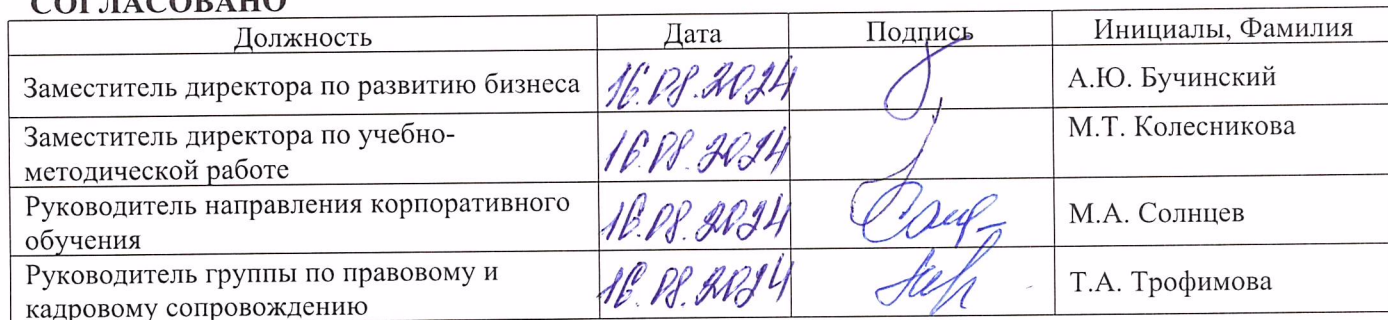 СОГЛАСОВАНО
Должность Дата Подпись Инициалы, Фамилия
Заместитель директора по развитию бизнеса 16.08.2024 А.Ю. Бучинский
Заместитель директора по учебно-
методической работе 16.08.2024 М.Т. Колесникова
Руководитель направления корпоративного
обучения 16.08.2024 М.А. Солнцев
Руководитель группы по правовому и
кадровому сопровождению 16.08.2024 Т.А. Трофимова